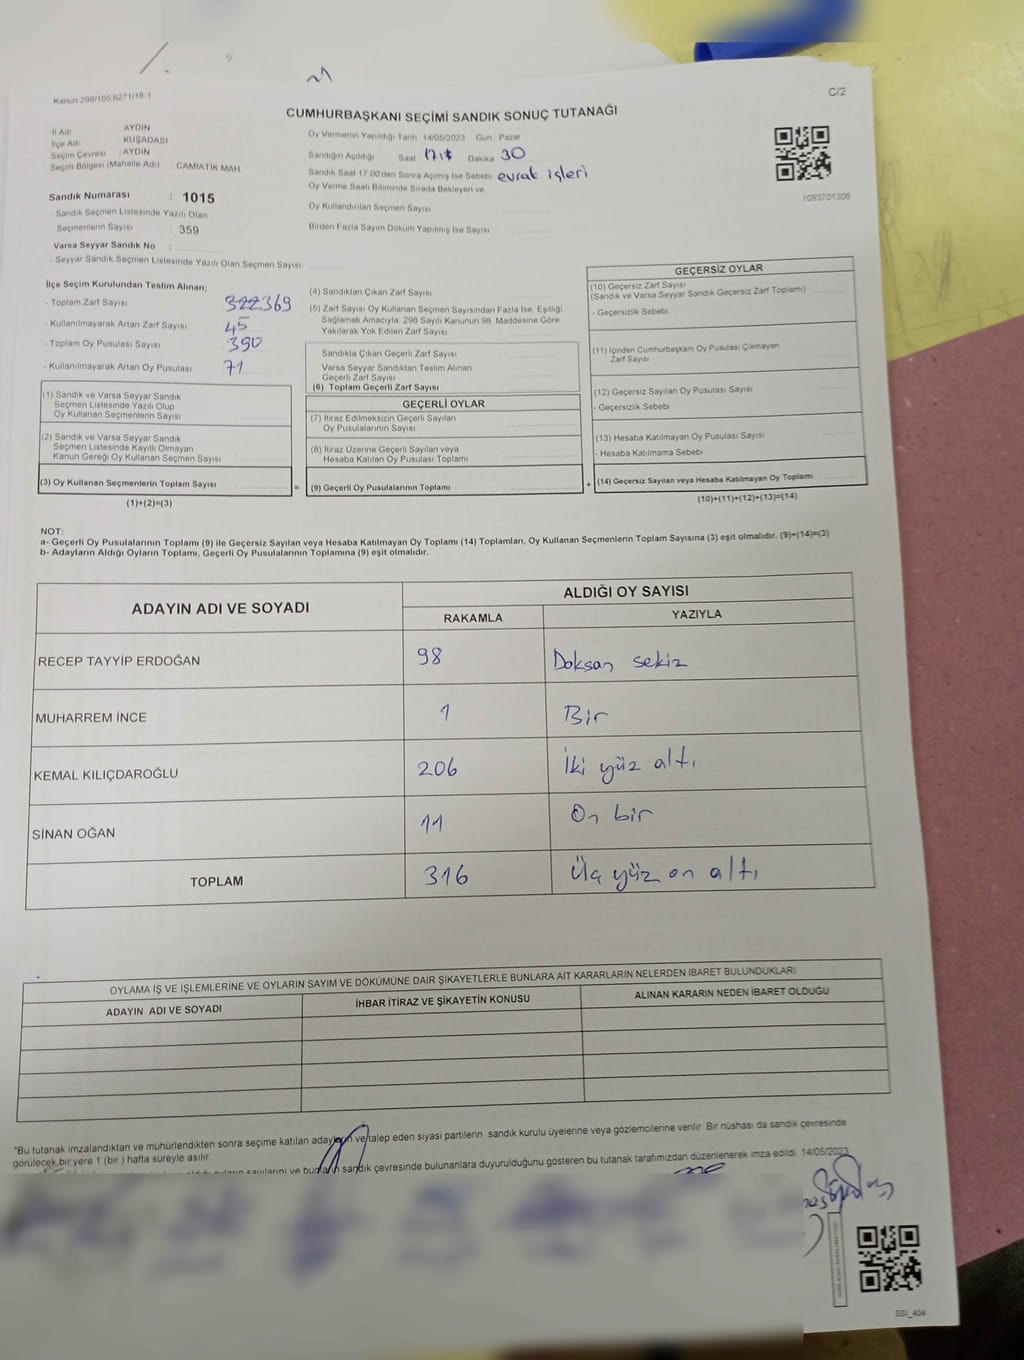 Kanun 298/105 6271/18-1
C/2
CUMHURBAŞKANI SEÇİMİ SANDIK SONUÇ TUTANAĞI
İl Adı AYDIN
İlçe Adı KUŞADASI
Seçim Çevresi : AYDIN
Seçim Bölgesi (Mahalle Adı) CAMİATİK MAH
Sandık Numarası : 1015
Sandık Seçmen Listesinde Yazılı Olan
Seçmenlerin Sayısı : 359
Varsa Seyyar Sandık No :
- Seyyar Sandık Seçmen Listesinde Yazılı Olan Seçmen Sayısı
Oy Vermenin Yapıldığı Tarih 14/05/2023 Gün Pazar
Sandığın Açıldığı Saat 17 Dakika 30
Sandık Saat 17.00'den Sonra Açılmış İse Sebebi evrak işleri
Oy Verme Saati Bitiminde Sırada Bekleyen ve
Oy Kullandırılan Seçmen Sayısı
Birden Fazla Sayım Döküm Yapılmış İse Sayısı
1093701306
İlçe Seçim Kurulundan Teslim Alınan;
- Toplam Zarf Sayısı 322 369
- Kullanılmayarak Artan Zarf Sayısı 45
- Toplam Oy Pusulası Sayısı 390
- Kullanılmayarak Artan Oy Pusulası 71
(1) Sandık ve Varsa Seyyar Sandık
Seçmen Listesinde Yazılı Olup
Oy Kullanan Seçmenlerin Sayısı
(2) Sandık ve Varsa Seyyar Sandık
Seçmen Listesinde Kayıtlı Olmayan
Kanun Gereği Oy Kullanan Seçmen Sayısı
(3) Oy Kullanan Seçmenlerin Toplam Sayısı
(1)+(2)=(3)
=
(4) Sandıktan Çıkan Zarf Sayısı
(5) Zarf Sayısı Oy Kullanan Seçmen Sayısından Fazla İse, Eşitliği
Sağlamak Amacıyla; 298 Sayılı Kanunun 98. Maddesine Göre
Yakılarak Yok Edilen Zarf Sayısı
Sandıkta Çıkan Geçerli Zarf Sayısı
Varsa Seyyar Sandıktan Teslim Alınan
Geçerli Zarf Sayısı
(6) Toplam Geçerli Zarf Sayısı
GEÇERLİ OYLAR
(7) İtiraz Edilmeksizin Geçerli Sayılan
Oy Pusulalarının Sayısı
(8) İtiraz Üzerine Geçerli Sayılan veya
Hesaba Katılan Oy Pusulası Toplamı
(9) Geçerli Oy Pusulalarının Toplamı
+
GEÇERSİZ OYLAR
(10) Geçersiz Zarf Sayısı
(Sandık ve Varsa Seyyar Sandık Geçersiz Zarf Toplamı)
- Geçersizlik Sebebi
(11) İçinden Cumhurbaşkanı Oy Pusulası Çıkmayan
Zarf Sayısı
(12) Geçersiz Sayılan Oy Pusulası Sayısı
- Geçersizlik Sebebi
(13) Hesaba Katılmayan Oy Pusulası Sayısı
- Hesaba Katılmama Sebebi
(14) Geçersiz Sayılan veya Hesaba Katılmayan Oy Toplamı
(10)+(11)+(12)+(13)=(14)
NOT:
a- Geçerli Oy Pusulalarının Toplamı (9) ile Geçersiz Sayılan veya Hesaba Katılmayan Oy Toplamı (14) Toplamları, Oy Kullanan Seçmenlerin Toplam Sayısına (3) eşit olmalıdır. (9)+(14)=(3)
b- Adayların Aldığı Oyların Toplamı, Geçerli Oy Pusulalarının Toplamına (9) eşit olmalıdır.
ADAYIN ADI VE SOYADI
ALDIĞI OY SAYISI
RAKAMLA YAZIYLA
RECEP TAYYİP ERDOĞAN 98 Doksan sekiz
MUHARREM İNCE 1 Bir
KEMAL KILIÇDAROĞLU 206 İki yüz altı
SİNAN OĞAN 11 On bir
TOPLAM 316 Üç yüz on altı
OYLAMA İŞ VE İŞLEMLERİNE VE OYLARIN SAYIM VE DÖKÜMÜNE DAİR ŞİKAYETLERLE BUNLARA AİT KARARLARIN NELERDEN İBARET BULUNDUKLARI
ADAYIN ADI VE SOYADI İHBAR İTİRAZ VE ŞİKAYETİN KONUSU ALINAN KARARIN NEDEN İBARET OLDUĞU
*Bu tutanak imzalandıktan ve mühürlendikten sonra seçime katılan adayların ve talep eden siyasi partilerin sandık kurulu üyelerine veya gözlemcilerine verilir. Bir nüshası da sandık çevresinde
görülecek bir yere 1 (bir) hafta süreyle asılır.
sayılarını ve bunların sandık çevresinde bulunanlara duyurulduğunu gösteren bu tutanak tarafımızdan düzenlenerek imza edildi. 14/05/2023
SSİ_404